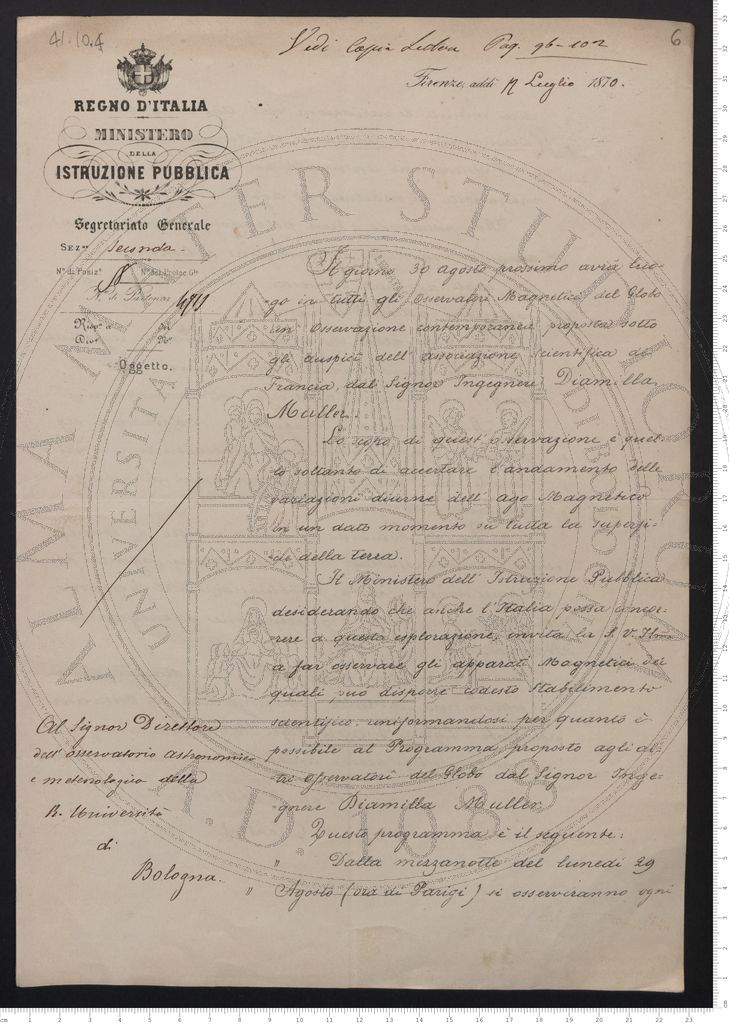 41.10.4
Vedi Copia Lettera Pag. 96-102
6
REGNO D'ITALIA
MINISTERO
DELLA
ISTRUZIONE PUBBLICA
Firenze, addì 12 Luglio 1870.
Segretariato Generale
SEZne Seconda
N.° di Posiz.e 18 N.° del Protoc. Gle
N. di Partenza 4911
Rispa a del
Div.e N.°
Oggetto.
Il giorno 30 agosto prossimo avrà luo-
go in tutti gli Osservatori Magnetici del Globo
un Osservazione contemporanea proposta sotto
gli auspici dell'associazione Scientifica di
Francia, dal Signor Ingegnere Diamilla
Muller.
Lo scopo di quest'osservazione è quel-
lo soltanto di accertare l'andamento delle
variazioni diurne dell'ago Magnetico
in un dato momento su tutta la superfi-
cie della terra.
Il Ministero dell'Istruzione Pubblica
desiderando che anche l'Italia possa concor-
rere a questa esplorazione, invita la S. V. Illma
a far osservare gli apparati Magnetici dei
quali può disporre codesto Stabilimento
scientifico, uniformandosi per quanto è
possibile al Programma proposto agli al-
tri Osservatori del Globo dal Signor Inge-
gnere Diamilla Muller.
Questo programma è il seguente:
" Dalla mezzanotte del lunedì 29
" Agosto (ora di Parigi) si osserveranno ogni
Al Signor Direttore
dell'osservatorio astronomico
e meteorologico della
R. Università
di
Bologna.
ALMA MATER STUDIORUM
A.D. 1088